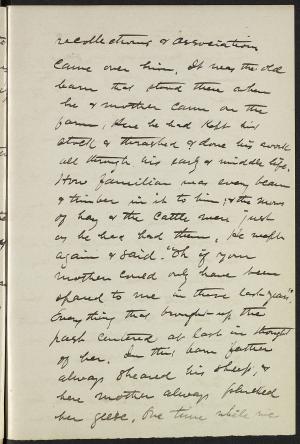 recollections & association
came over him. It was the old
barn that stood there when
he & mother came on the
farm; Here he had kept his
stock & thrashed & done his work
all through his early & middle life.
How familiar was every beam
& timber in it to him; & the mows
of hay & the cattle were just
as he had had them. He wept
again & said "Oh if your
mother could only have been
spared to me in these last years".
Everything that brought up the
past centered at last in thought
of her. In this barn father
always sheared his sheep, &
here mother always plucked
her geese. One time while we